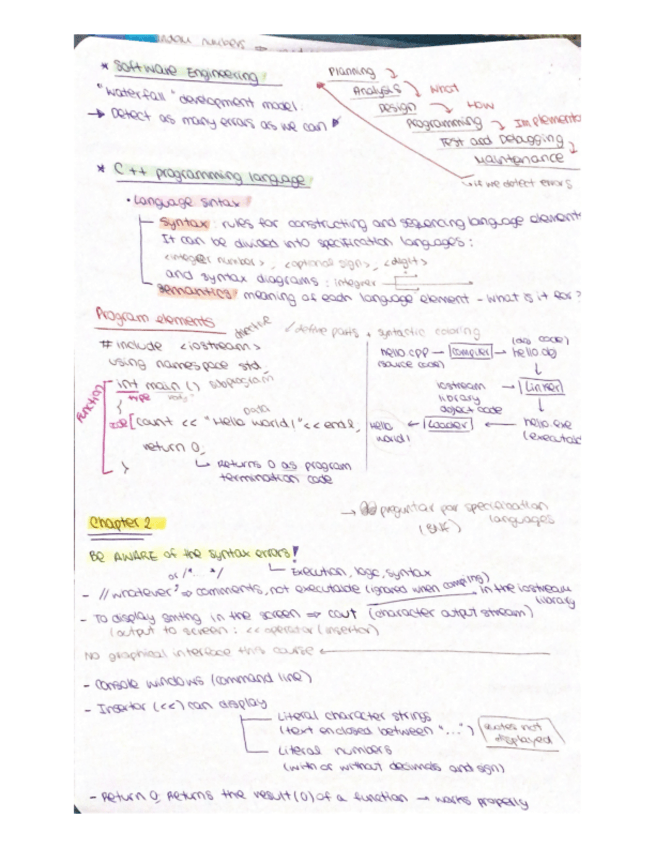 numbers
* Software Engineering
"Waterfall" development model:
→ Detect as many errors as we can
Planning
Analysis What
Design How
Programming Implementa
Test and Debugging
Maintenance
if we detect errors
* C++ programming language
• Language sintax
Syntax: rules for constructing and sequencing language element
It can be divided into specification languages:
<integer number>, <optional sign>, <digit>
and syntax diagrams: integer
Semantics: meaning of each language element - what is it for?
Program elements
directive
# include <iostream>
using namespace std;
function
int main () subprogram
type
{
Data
code [count << "Hello World!" << endl;
return 0;
↳ Returns 0 as program
termination code
}
✓define parts + syntactic coloring
hello.cpp → compiler → hello.obj
(source code) (obj code)
iostream → Linker
library
object code
hello ← Loader ← hello.exe
world! (executab
→ preguntar por specification
languages
(BNF)
Chapter 2
BE AWARE of the syntax errors!
↳ Execution, logic, syntax
or /*...*/
- // whatever ⇒ comments, not executable (ignored when compiling)
in the iostream
library
- To display smting in the screen ⇒ cout (character output stream)
(output to screen: << operator (insertor)
No graphical interface this course ←
- Console windows (command line)
- Insertor (<<) can display
Literal character strings
(text enclosed between "...") quotes not
displayed
Literal numbers
(with or without decimals and sign)
- Return 0; Returns the result (0) of a function → works properly